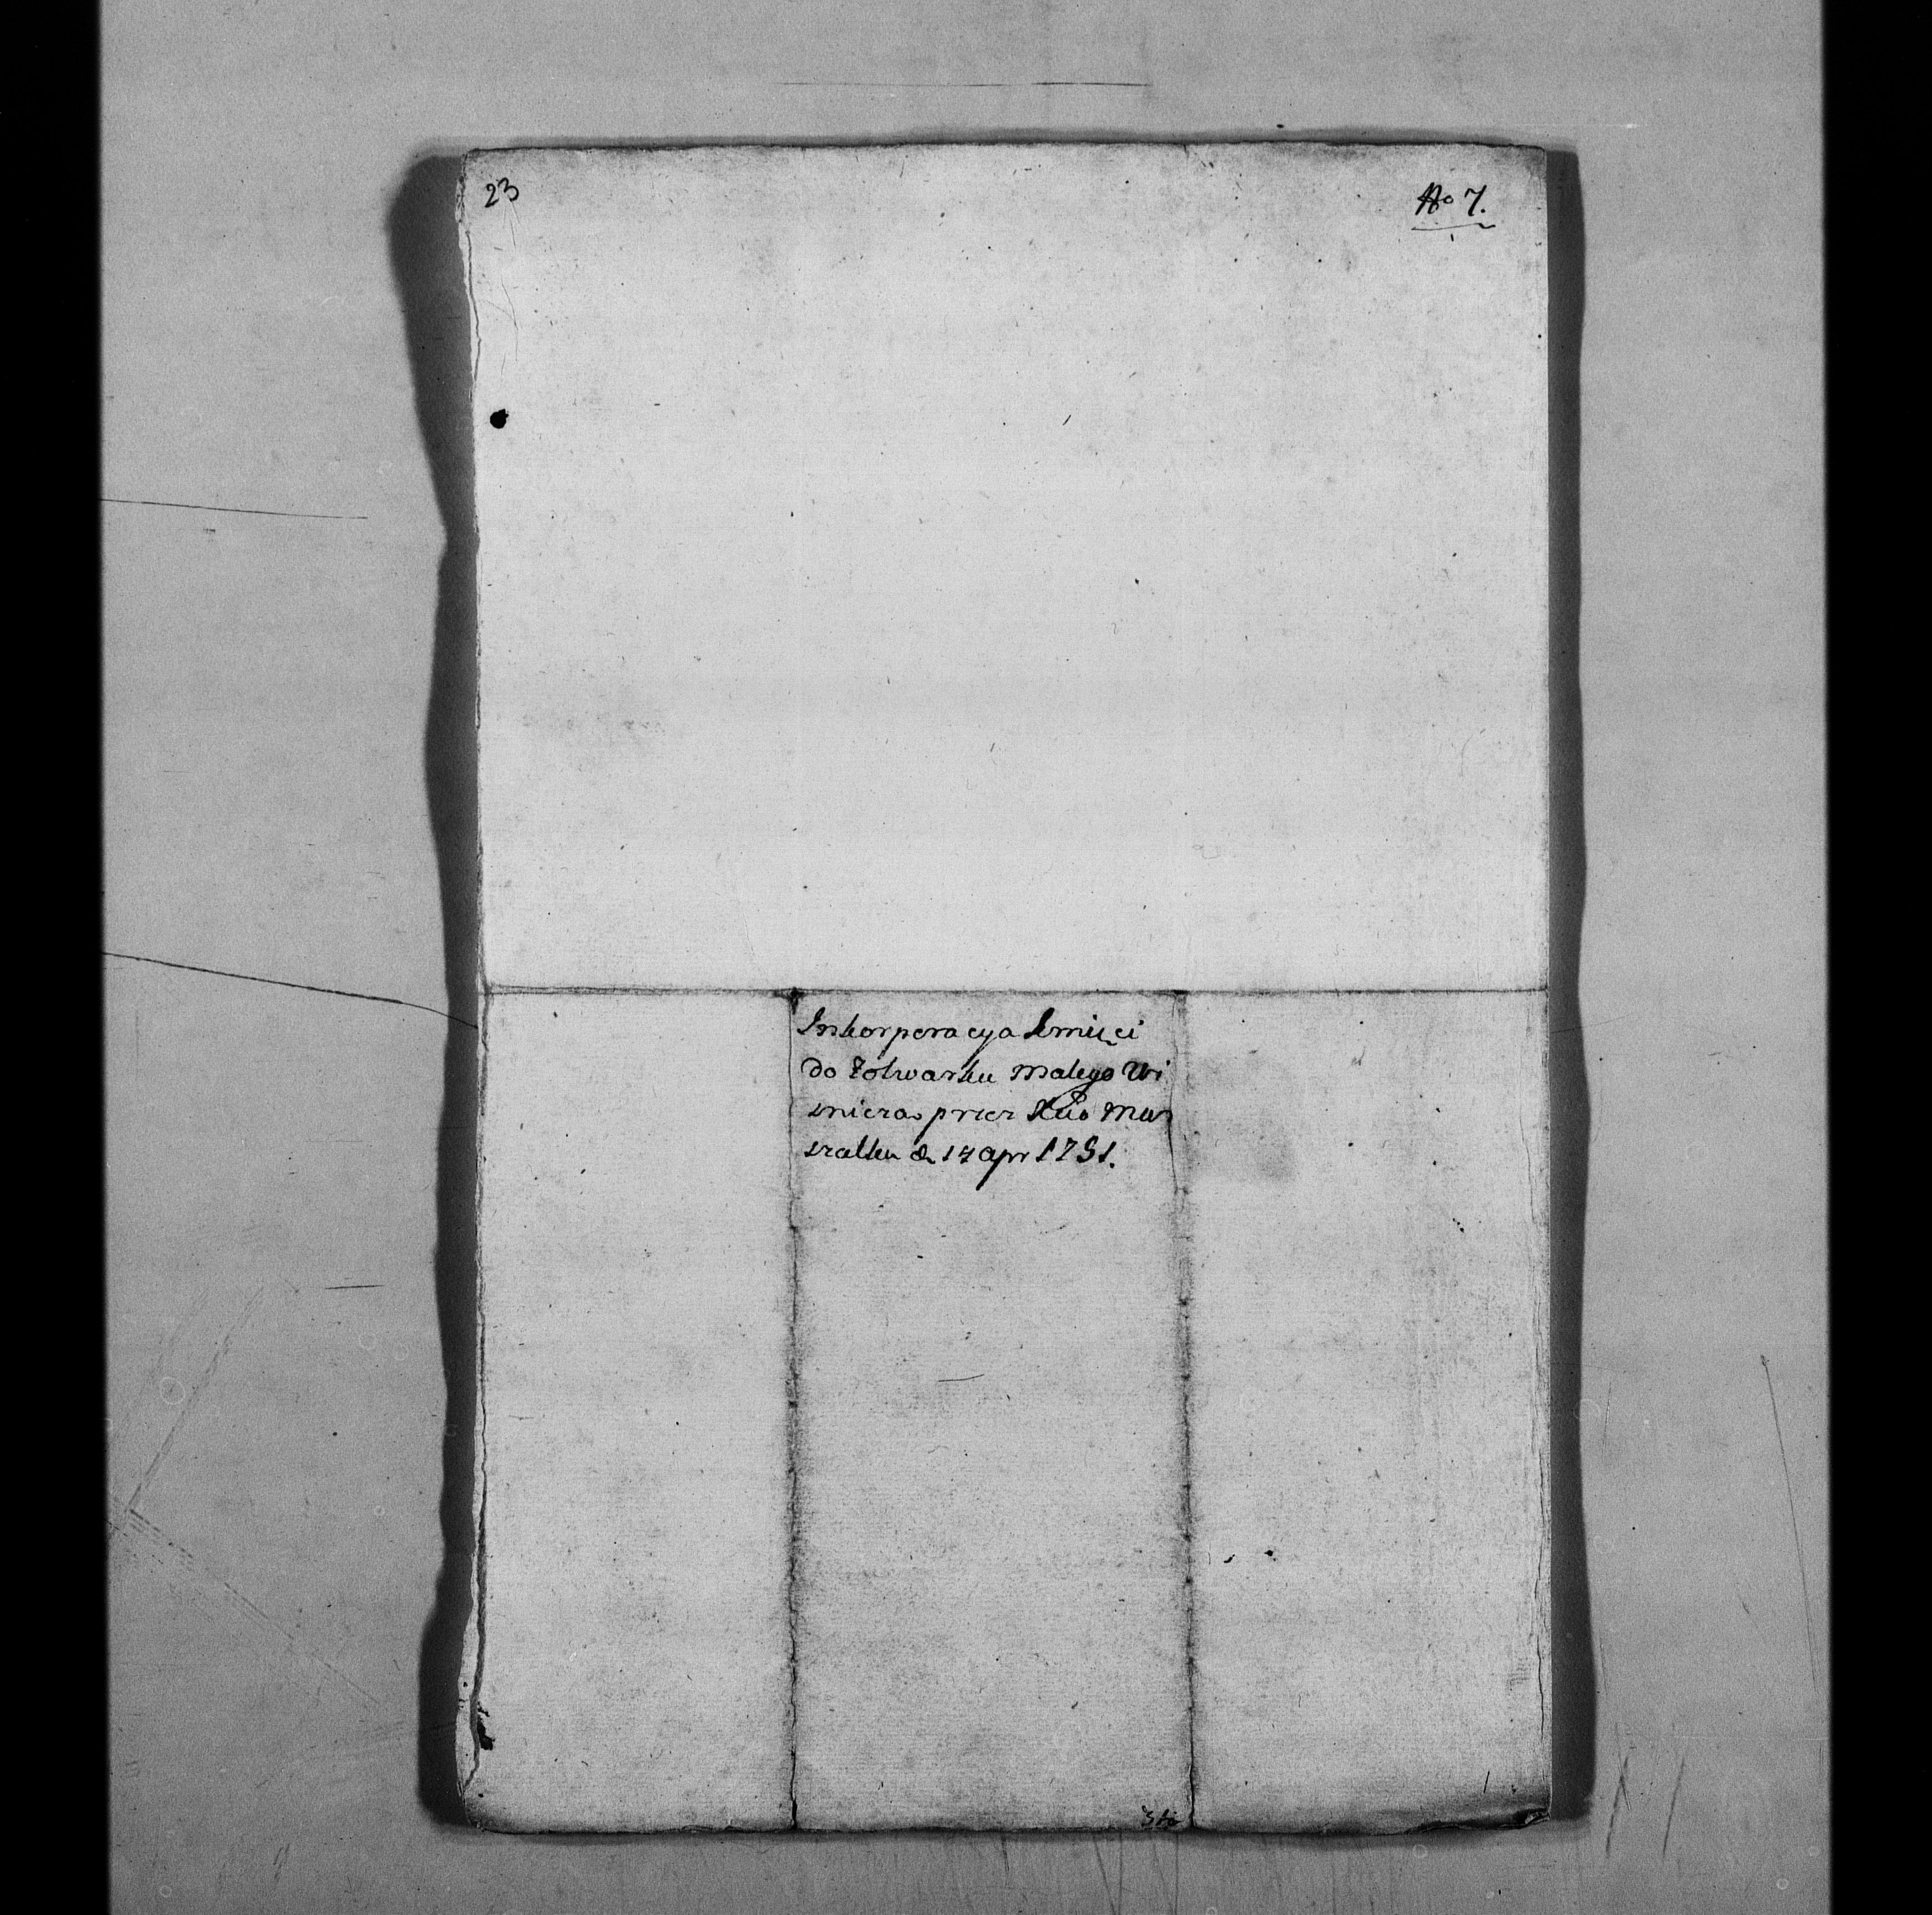 23
No 7.
Inkorporacya
do Folwarku Małego Wi
smierza przez Xcia Mar
szałka d. 17 apr 1751.